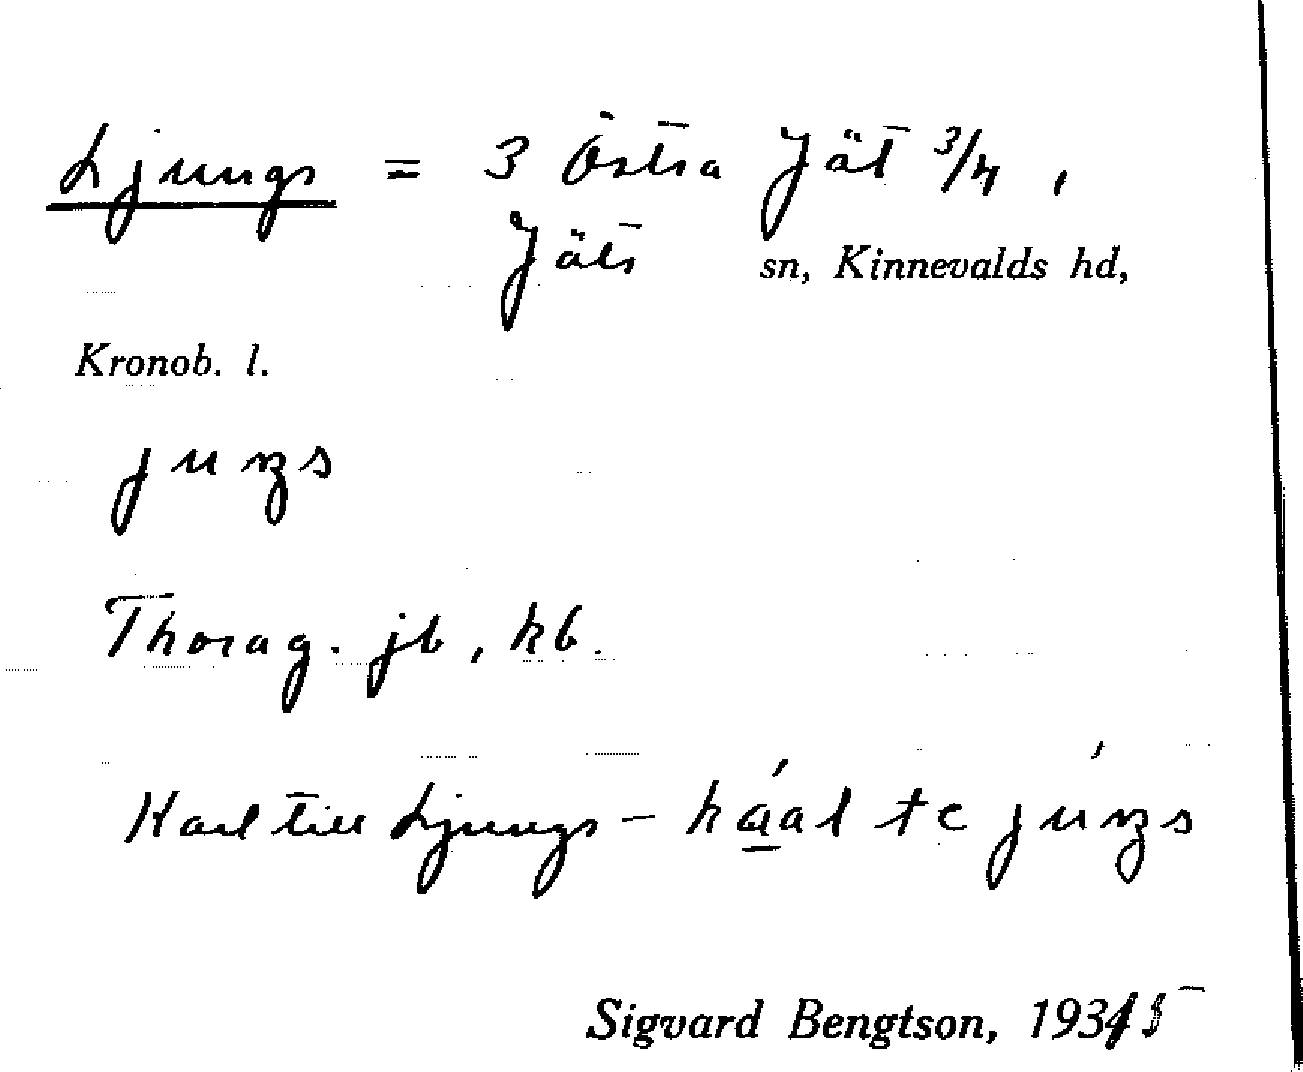 Ljungs = 3 Östra Jät 3/4,
Jäts sn, Kinnevalds hd,
Kronob. l.
juŋs
Thorag. jb, kb.
Karl till Ljungs – ká̱al te júŋs
Sigvard Bengtson, 1935